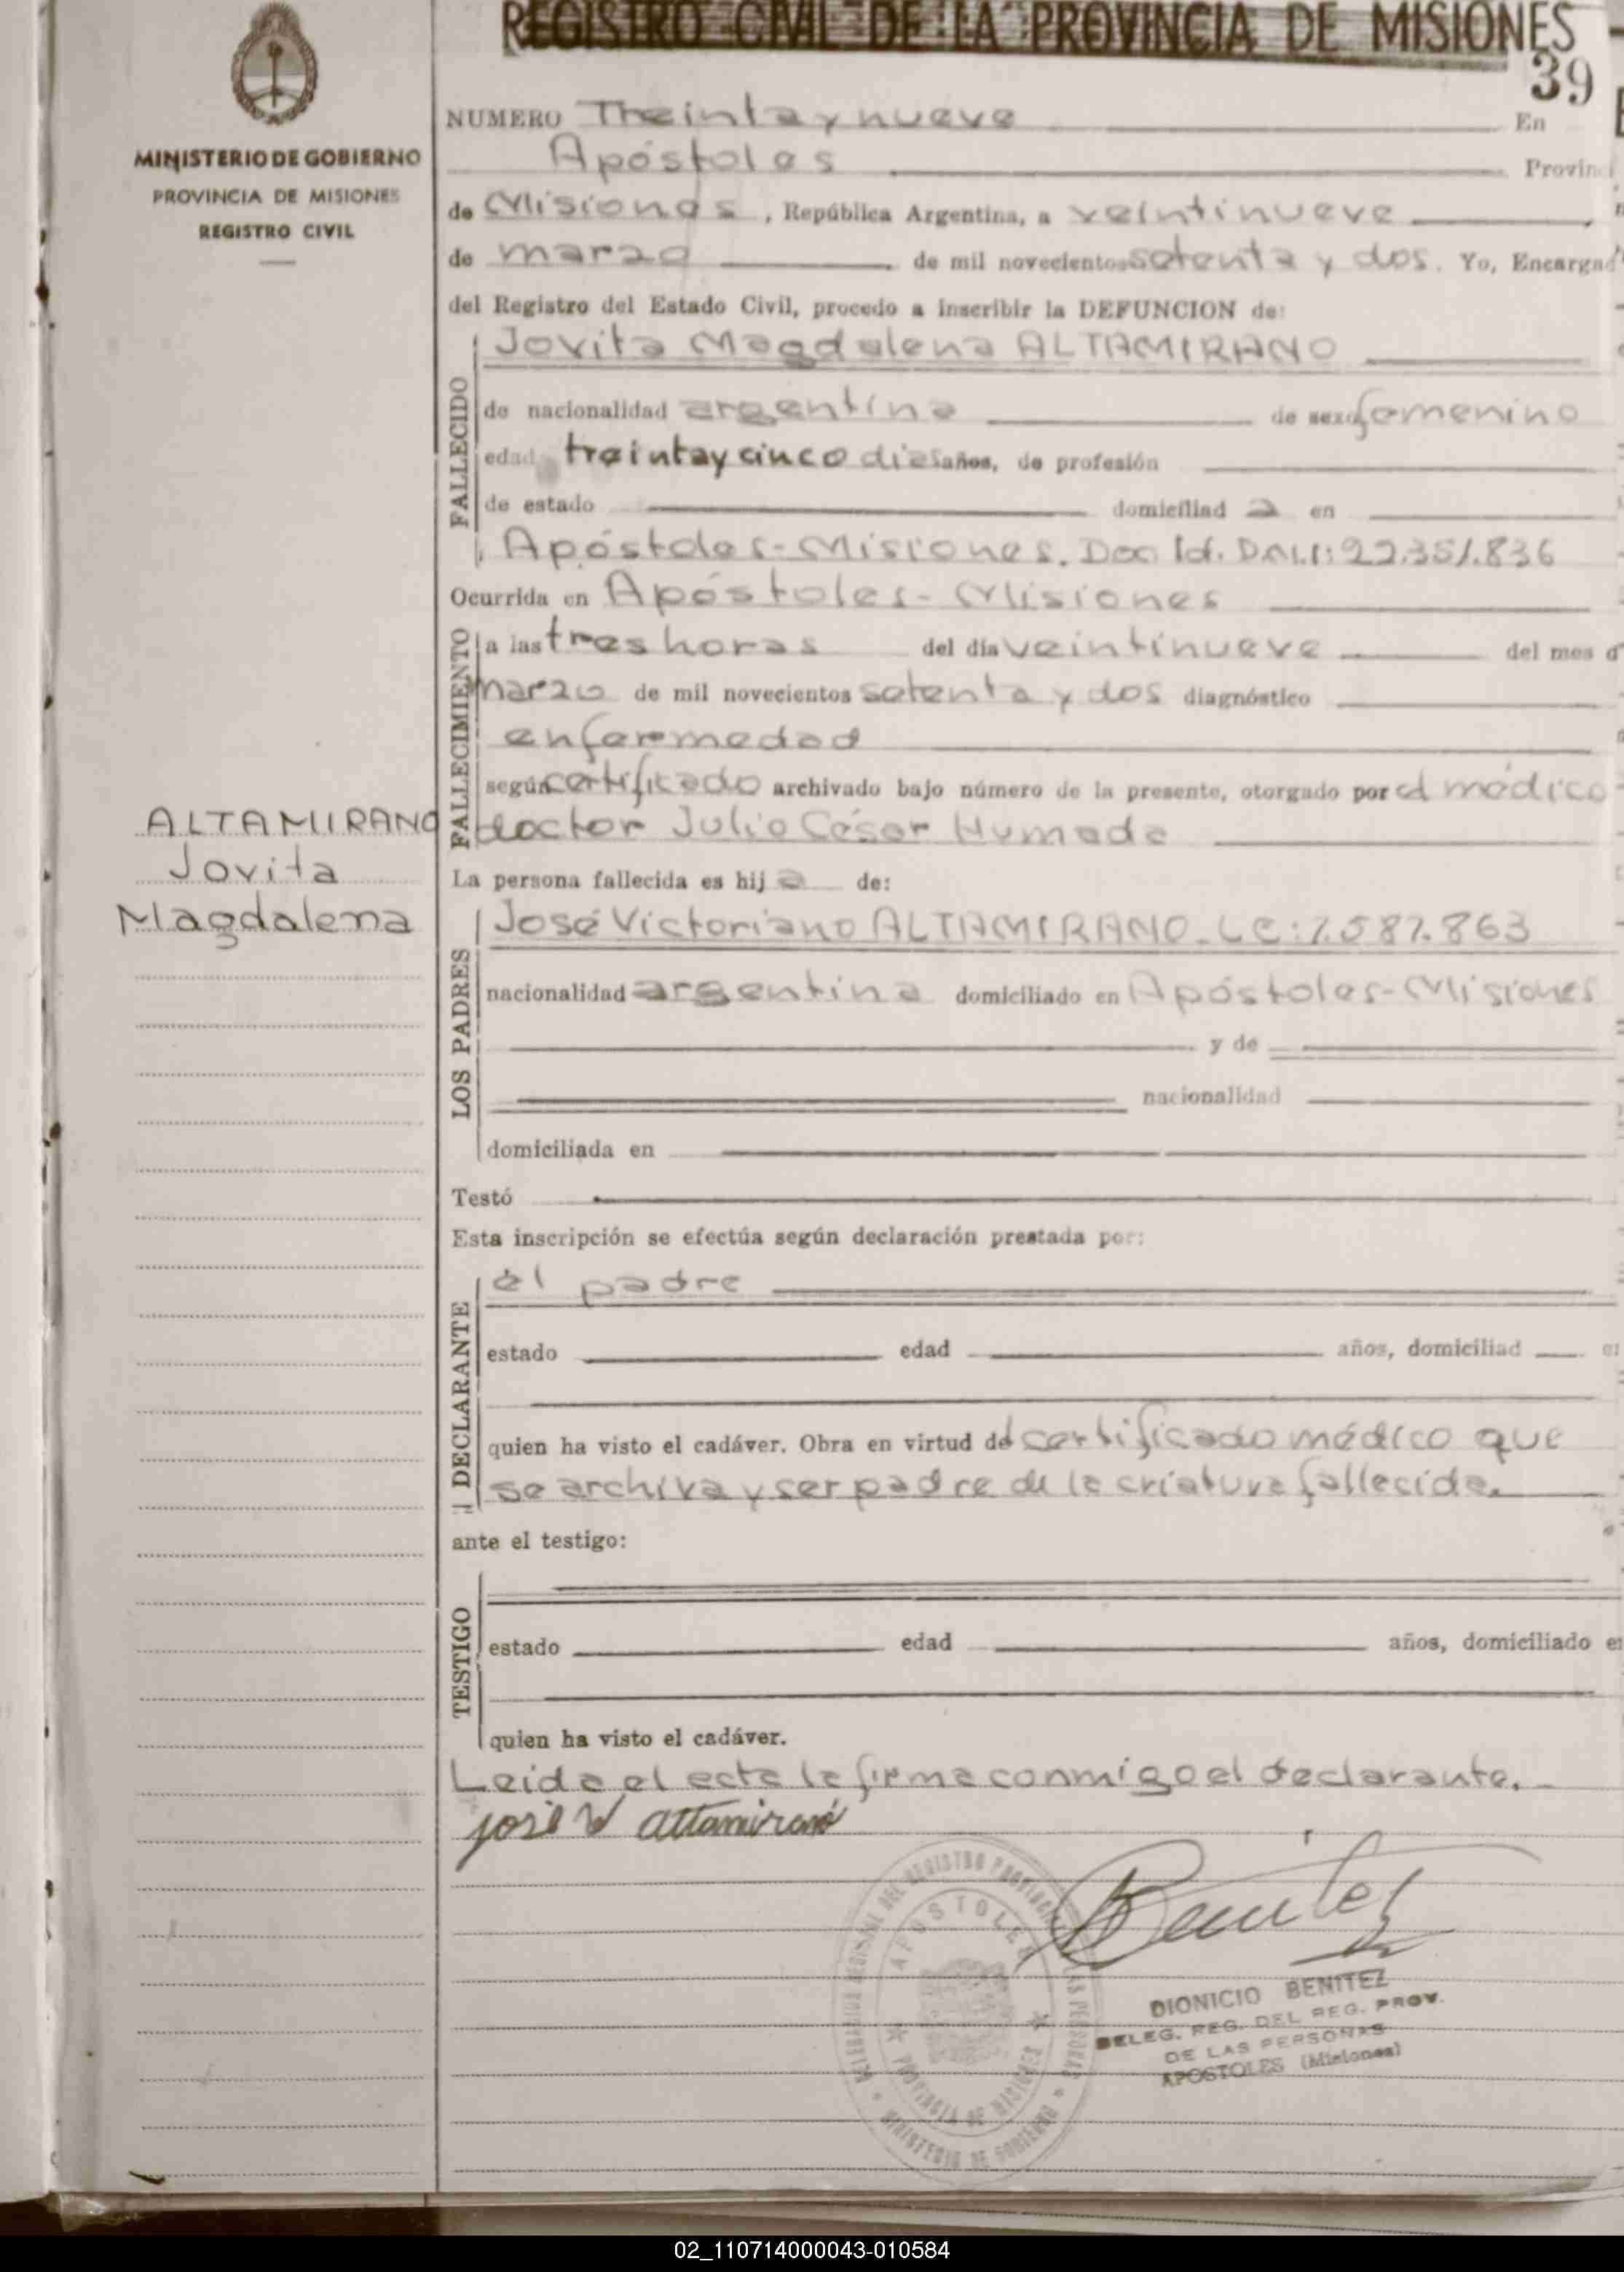 REGISTRO CIVIL DE LA PROVINCIA DE MISIONES
39
MINISTERIO DE GOBIERNO
PROVINCIA DE MISIONES
REGISTRO CIVIL
NUMERO Treinta y nueve En
Apóstoles Provinci
de Misiones, República Argentina, a veintinueve
de marzo de mil novecientos setenta y dos. Yo, Encargad
del Registro del Estado Civil, procedo a inscribir la DEFUNCION de:
FALLECIDO
Jovita Magdalena ALTAMIRANO
de nacionalidad argentina de sexo femenino
edad treinta y cinco dias años, de profesión
de estado domiciliad a en
Apóstoles-Misiones. Doc. Id. D.N.I: 22.351.836
Ocurrida en Apóstoles-Misiones
FALLECIMIENTO
a las tres horas del día veintinueve del mes d
marzo de mil novecientos setenta y dos diagnóstico
enfermedad
según certificado archivado bajo número de la presente, otorgado por el médico
doctor Julio César Humada
ALTAMIRANO
Jovita
Magdalena
La persona fallecida es hij a de:
LOS PADRES
José Victoriano ALTAMIRANO. 863
nacionalidad argentina domiciliado en Apóstoles-Misiones
y de
nacionalidad
domiciliada en
Testó
Esta inscripción se efectúa según declaración prestada por:
DECLARANTE
el padre
estado edad años, domiciliad
quien ha visto el cadáver. Obra en virtud de certificado médico que
se archiva y ser padre de la criatura fallecida.
ante el testigo:
TESTIGO
estado edad años, domiciliado e
quien ha visto el cadáver.
Leida el acta la firma conmigo el declarante.
josé V altamirano
Benitez
APOSTOLES
PROVINCIA DE MISIONES
MINISTERIO DE GOBIERNO
DIONICIO BENITEZ
DELEG. REG. DEL REG. PROV.
DE LAS PERSONAS
APOSTOLES (Misiones)
02_110714000043-010584